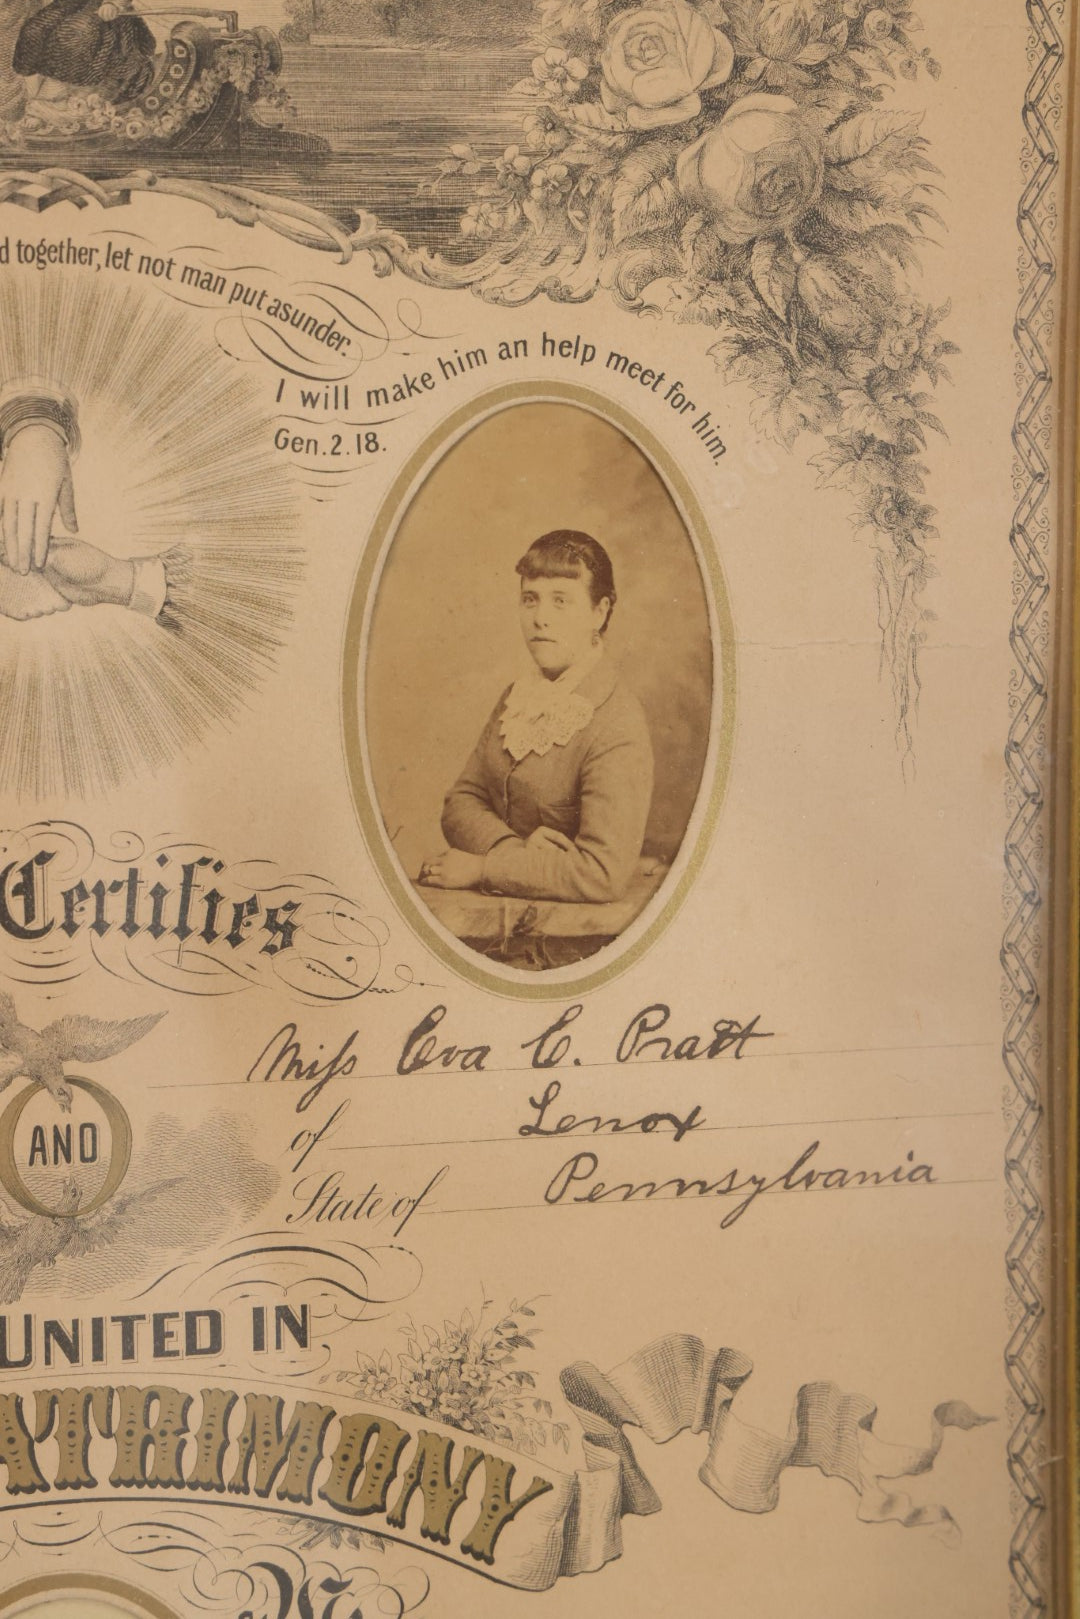 d together, let not man put asunder.
I will make him an help meet for him.
Gen. 2. 18.
Certifies
Miss Eva C. Pratt
AND
of Lenox
State of Pennsylvania
UNITED IN
ATRIMONY